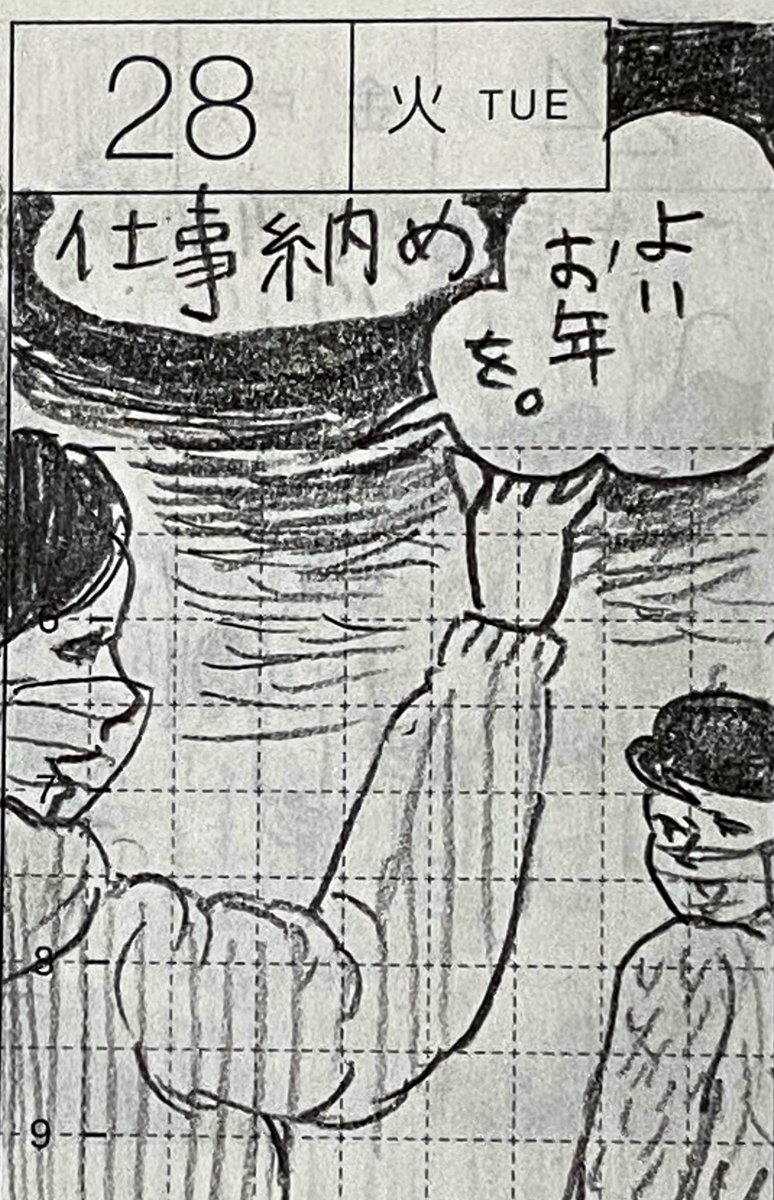 28
火 TUE
仕事納め
よい
お年
を。
6
7
8
9